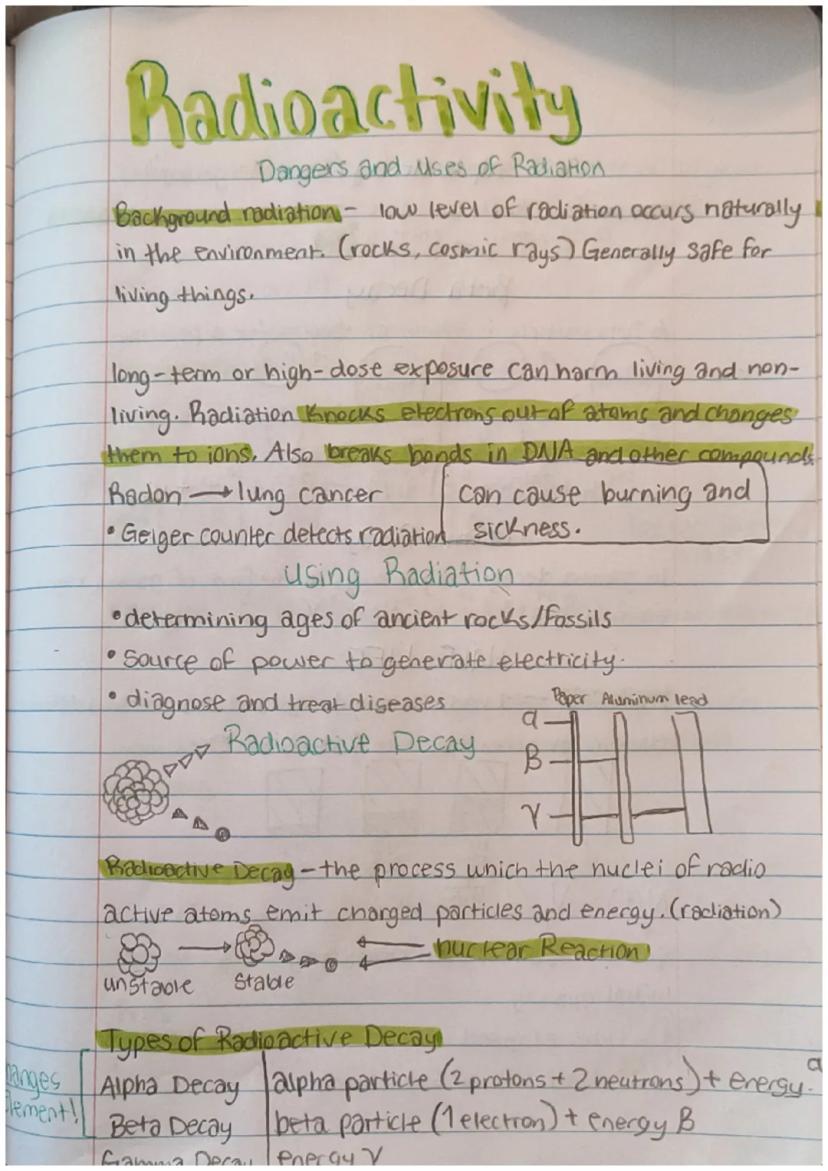 Radioactivity
Dangers and Uses of Radiation
Background radiation - low level of radiation occurs naturally
in the environment. (rocks, cosmic rays) Generally safe for
living things.
long-term or high-dose exposure can harm living and non-
living. Radiation knocks electrons out of atoms and changes
them to ions. Also breaks bonds in DNA and other compounds
Radon → lung cancer
can cause burning and
• Geiger counter detects radiation
sickness.
Using Radiation
• determining ages of ancient rocks/fossils
• Source of power to generate electricity.
• diagnose and treat diseases
Paper Aluminum lead
α
Radioactive Decay
β
γ
Radioactive Decay - the process which the nuclei of radio
active atoms emit charged particles and energy. (radiation)
nuclear Reaction
unstable
Stable
Types of Radioactive Decay
anges
lement!
Alpha Decay
alpha particle (2 protons + 2 neutrons) + energy. α
Beta Decay
beta particle (1 electron) + energy β
Gamma Decay
energy γ